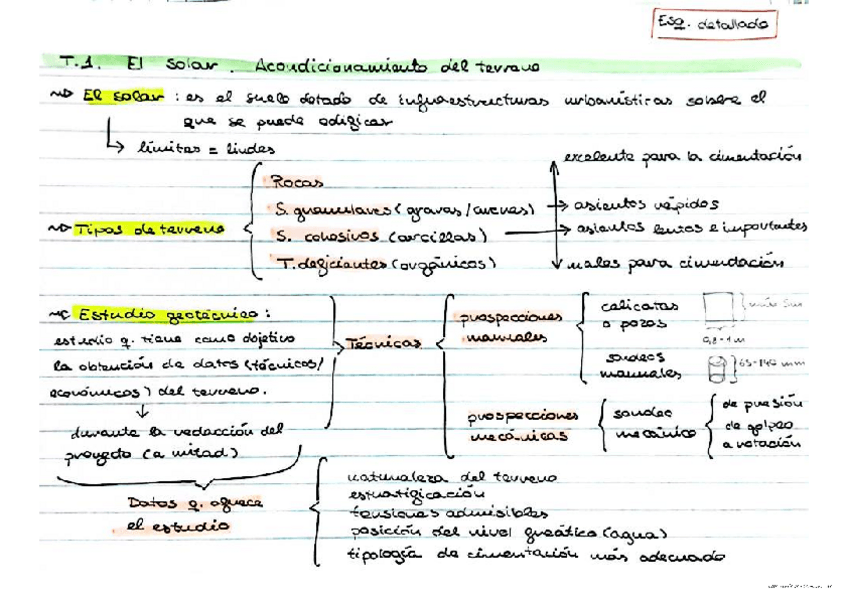 Esq. detallado
T.1. El solar. Acondicionamiento del terreno
El solar : es el suelo dotado de infraestructuras urbanísticas sobre el
que se puede edificar
límites = lindes
excelente para la cimentación
Rocas
S. granulares (gravas/arenas) → asientos rápidos
Tipos de terreno
S. cohesivos (arcillas) → asientos lentos e importantes
T. deficientes (orgánicos)
malos para cimentación
Estudio geotécnico :
estudio q. tiene como objetivo
la obtención de datos (técnicos/
económicos) del terreno.
durante la redacción del
proyecto (a mitad)
Técnicas
prospecciones
manuales
calicatas
o pozos
0,8-1 m
sondeos
manuales
65-140 mm
prospecciones
mecánicas
sondeo
mecánico
de presión
de golpeo
a rotación
Datos q. ofrece
el estudio
naturaleza del terreno
estratificación
tensiones admisibles
posición del nivel freático (agua)
tipología de cimentación más adecuado